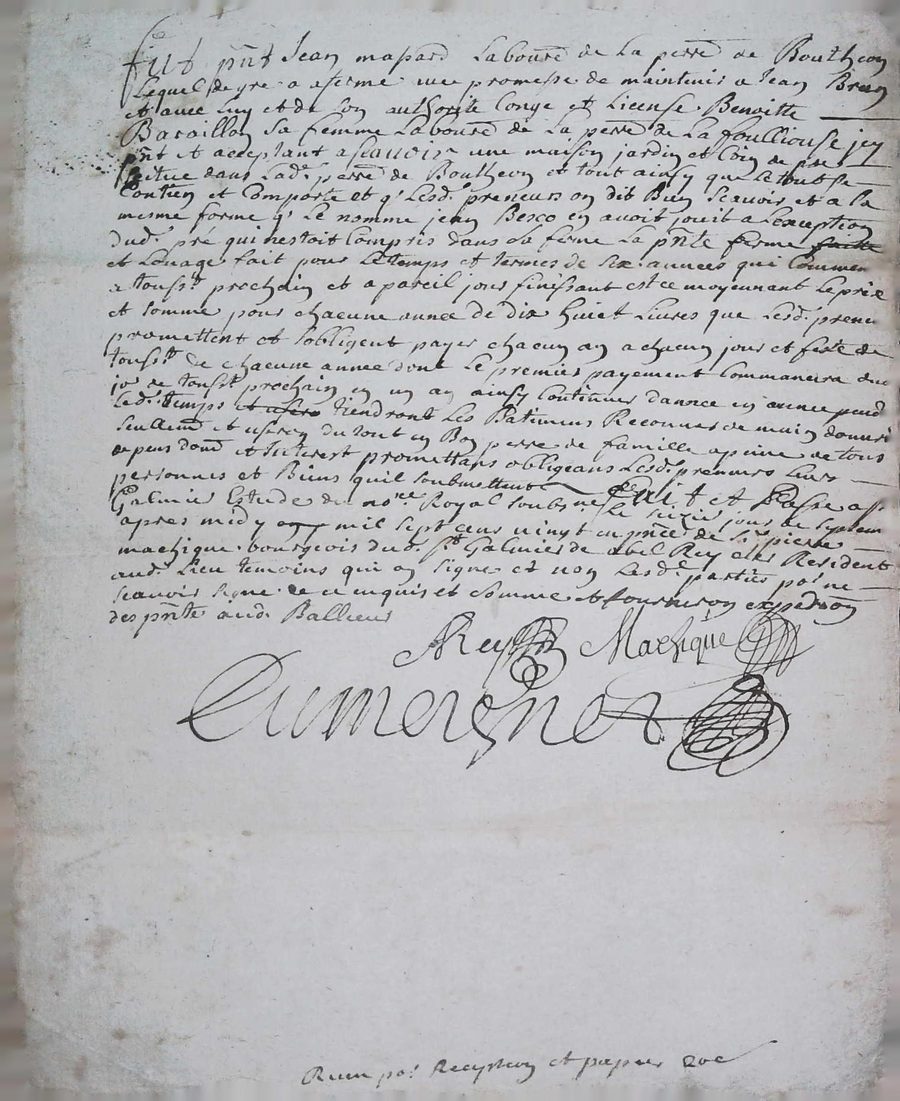 fut pnt Jean massard Laboure de La perre de Boutheon
Lequel de gre a aferme avec promesse de maintenir a Jean
et avec luy et de son authorite Conge et License Benoitte
Baraillon sa femme Laboure de La perre de La foulliouse jcy
pnt et acceptant ascauoir une maison jardin et Coin de pre
scitue dans Lade. perre de Boutheon et tout ainsy que Le tout se
Contien et Comporte et q' Lesd. preneurs on dit Bien Scauoir et a la
mesme forme q' Le nomme jean Besco en auoit jouit a Lexception
dud. pré qui nestoit Compris dans sa ferme La pnte ferme
et Louage fait pour Le temps et termes de six années qui Commen
a tousst. prochain et a pareil jour finissant est ce moyennant Le prix
et somme pour chacune année de dix huict Liures que Lesd. preneu
promettent et sobligent payer chacun an a chacun jour et feste de
tousst. de chacune année dont Le premier payement Commancera du
jor de tousst. prochain en un an ainsy Continuer dannee en annee pend
Led. temps et Tiendront Les Batimens
et useron du tout en Bon perre de famille a peine de tous
depens dome et Interest promettans obligeans Lesd. preneurs Leurs
personnes et Biens quil soubmettent fait et Passe a st.
Galmier Estude du nore Royal soubsne Le seizie jour de septem
apres midy mil sept cens uingt en pnce de sr. pierre
machique bourgeois dud. st. Galmier de abel Rey Resident
aud. Lieu temoins qui on signe et non Lesd. parties por ne
scauoir signe de ce enquis et somme et fourniron expedion
des pnte aud. Bailleur
ARey Machique
Dumergner
Rieu por Recepteon et papier